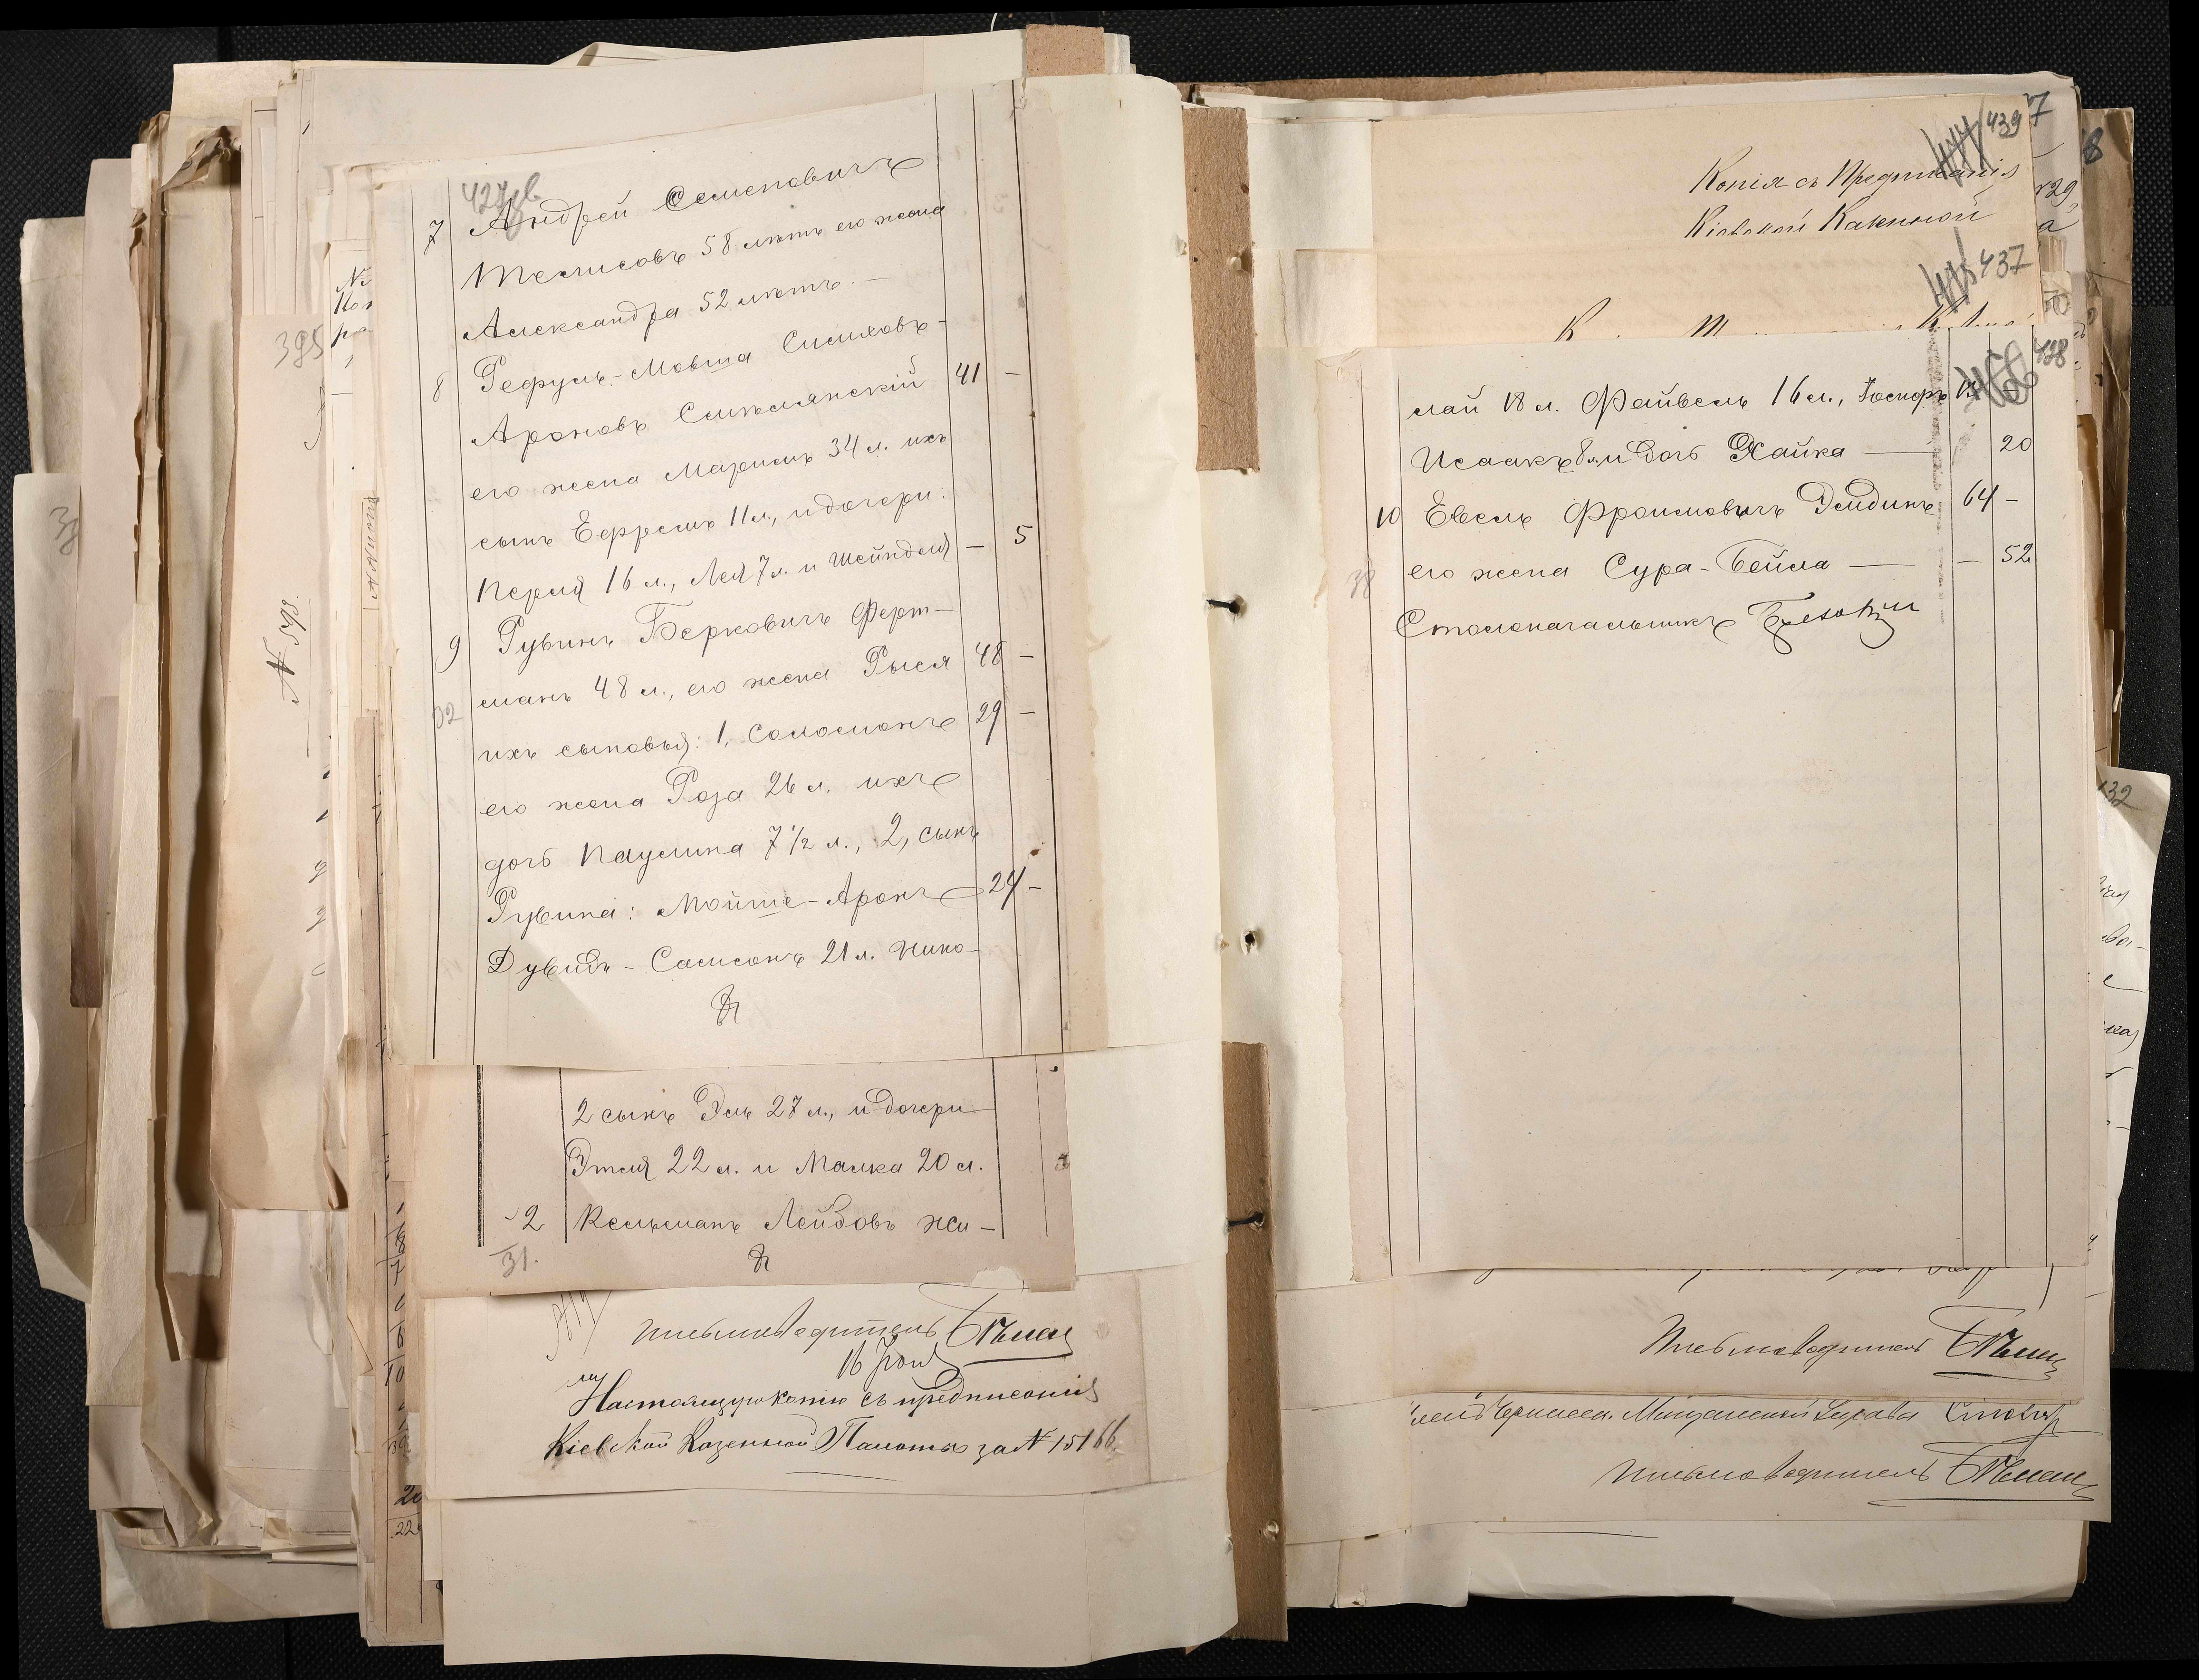 427об
7 Андрей Семеновичъ
Тесмисовъ 58 лѣтъ его жена
Александра 52 лѣтъ. —
8 Рефуль-Мовша Симховъ-
Ароновъ Смѣлянскій 41 —
его жена Маріимъ 34 л. ихъ
сынъ Ефремъ 11 л., и дочери:
Перля 16 л., Лея 7 л. и Шейндля — 5
9 Рувинъ Берковичъ Ферт-
манъ 48 л., его жена Рыся 48 —
ихъ сыновья: 1, Соломонъ 29 —
его жена Роза 26 л. ихъ
дочь Паулина 7 1/2 л., 2, сынъ
Рувина: Мойше-Аронъ 24 —
Дувидъ-Самсонъ 21 л. Нико-
2 сынъ Эль 27 л., и дочери
Этля 22 л. и Малка 20 л.
2 Кельманъ Лейбовъ Жи-
31.
Письмоводитель
16 Іюля
Настоящую копію съ предписанія
Кіевской Казенной Палаты за № 15166
395
439
7
Копія съ Предписанія
Кіевской Казенной
437
428
лай 18 л. Файвель 16 л., Іосифъ 13
Исаакъ 8 л. и дочь Хайка — 20
10 Евель Фроимовичъ Эйдинъ 64 —
его жена Сура-Бейла — — 52
Столоначальникъ
Письмоводитель
Мѣщанской Управы Староста
Письмоводитель
132